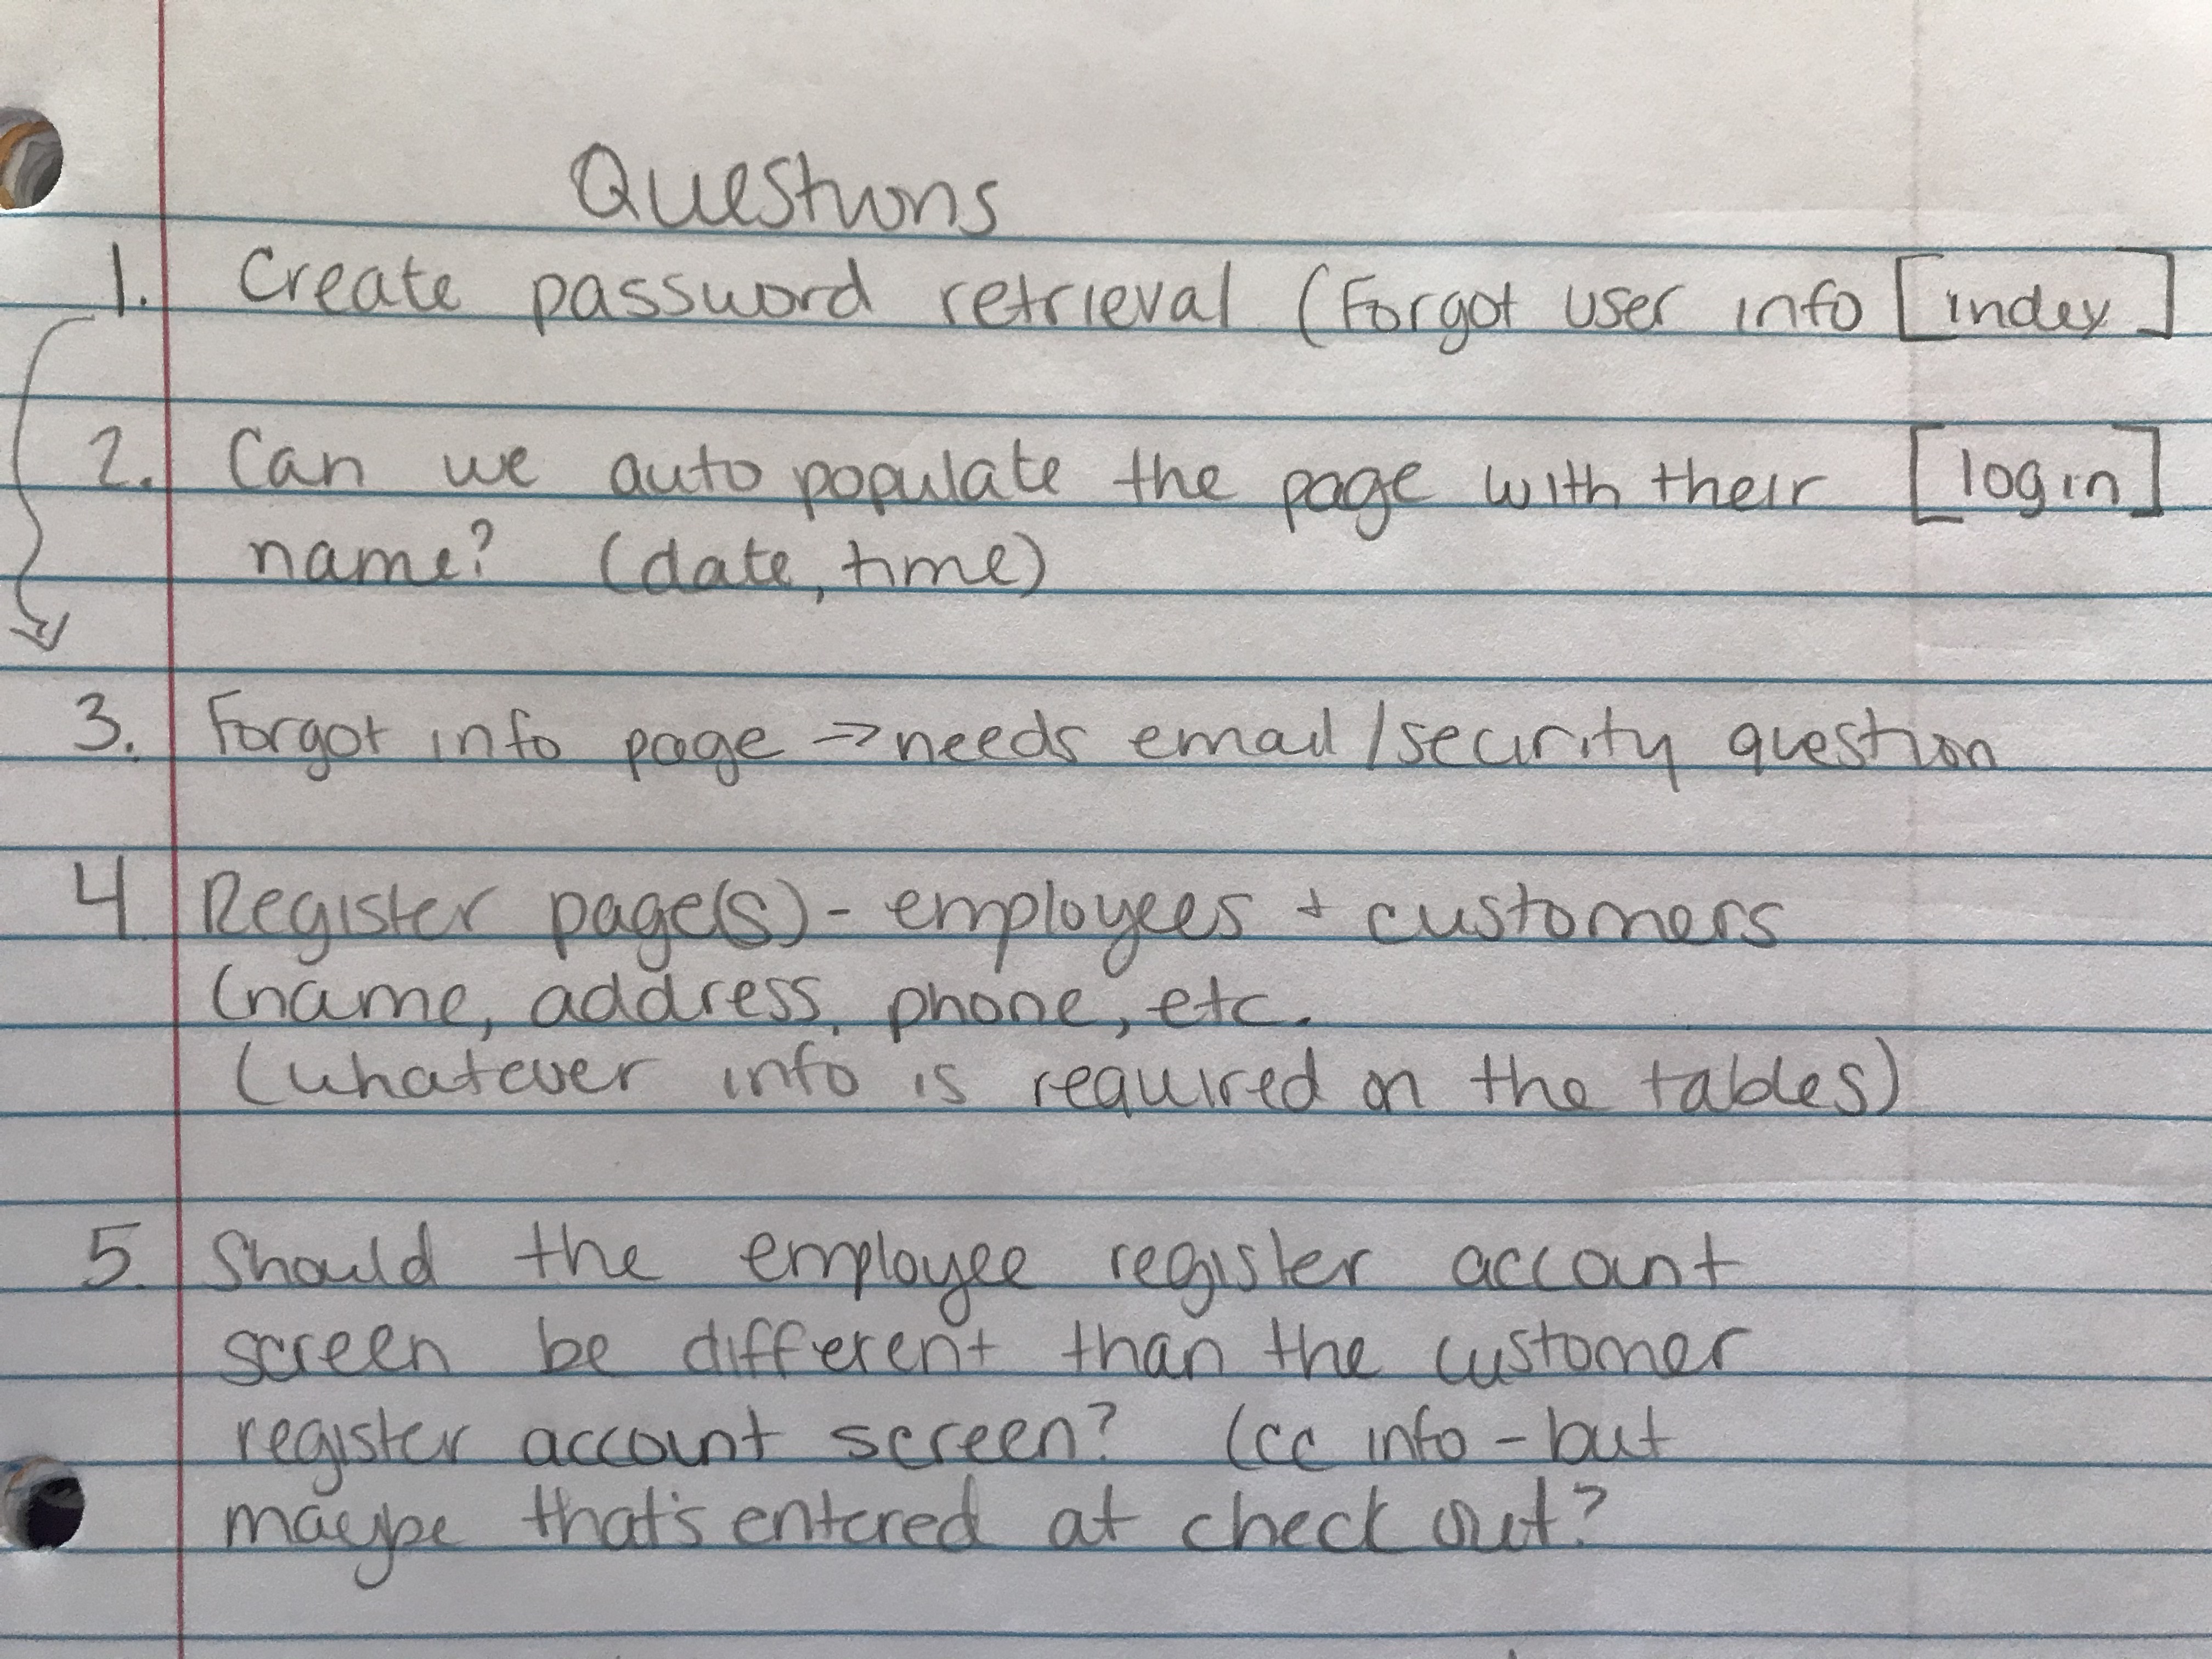 Questions
1. Create password retrieval (Forgot user info [index]
2. Can we auto populate the page with their [login]
name? (date, time)
3. Forgot info page => needs email/security question
4 Register page(s) - employees + customers
(name, address, phone, etc.
(whatever info is required on the tables)
5. Should the employee register account
screen be different than the customer
register account screen? (cc info - but
maybe that's entered at check out?